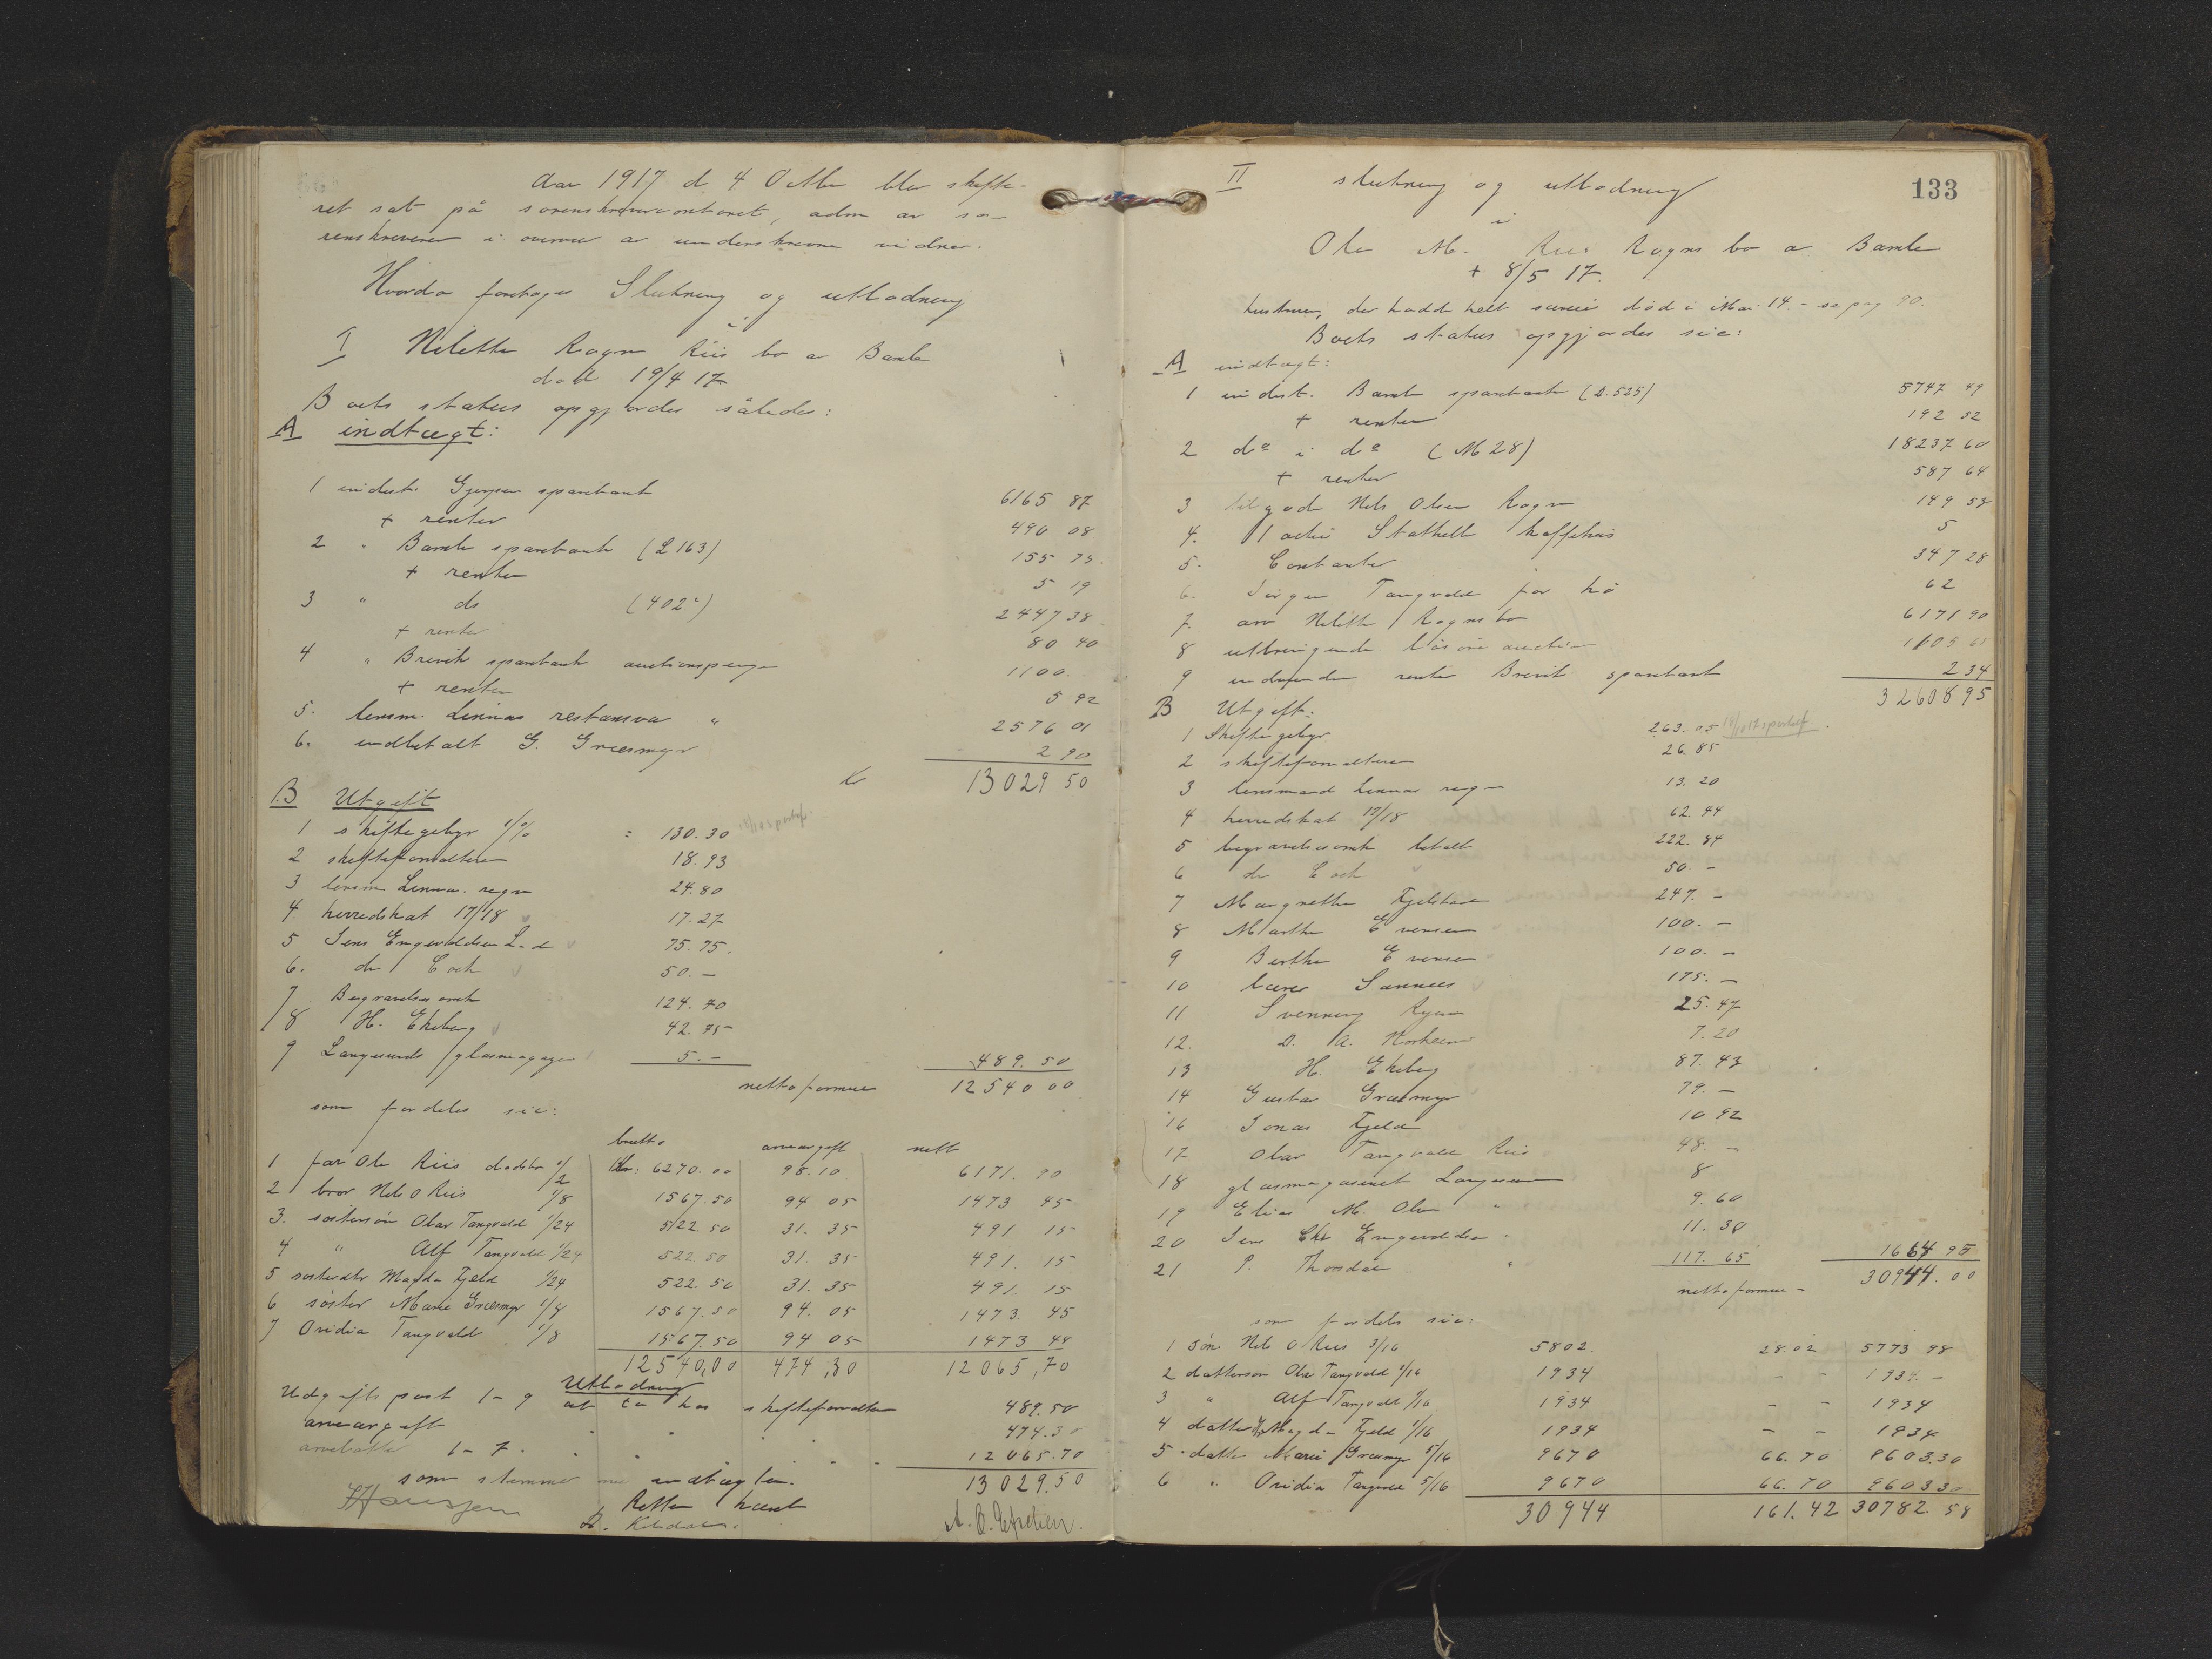 Aar 1917 d. 4 Octbr blev skifte-
ret sat på sorenskrivercontoret, adm av so-
renskriveren i overvær av underskrevne vidner.
Hvorda foretoges Slutning og utlodning
i
I Nilette Rogn Riis bo av Bamle
død 19/4 17
Boets status opgjordes således:
A indtægt:
1 indest. Gjerpen sparebank 6165 87
+ renter 490 08
2 " Bamle sparebank (L 163) 155 75
+ renter 5 19
3 " do (402) 2447 38
+ renter 80 40
4 " Brevik sparebank auctionspenge 1100.
+ renter 5 92
5. lensm. Linnaas restansva " 2576 01
6. indbetalt G. Græsmyr 2 90
Kr 13029 50
B Utgift
1 skiftegebyr 1% = 130.30
2 skifteforvalteren 18.93
3 lensm Linnaas regn 24.80
4. herredskat 17/18 17.27
5 Jens Engevoldsen 75.75.
6. dr Coch 50.-
7 Begravelsesomk 124.70
8 H. Ekeberg 42.75
9 Langesunds glasmagasin 5.- 489.50
nettoformue 12540 00
som fordeles sic:
brutto arveavgift netto
1 far Ole Riis dødsbo 1/2 Kr: 6270.00 98.10 6171.90
2 bror Nils O Riis 1/8 1567.50 94 05 1473 45
3. søstersøn Olav Tangvald 1/24 522.50 31.35 491 15
4 " Alf Tangvald 1/24 522.50 31.35 491.15
5 søsterdtr Magda Fjeld 1/24 522.50 31.35 491.15
6 søster Marie Græsmyr 1/8 1567.50 94.05 1473.45
7 Ovidia Tangvald 1/8 1567.50 94 05 1473 45
12540,00 474,30 12065,70
Utlodning
Udgifts post 1-9 at ta hos skifteforvalteren 489.50
arveavgift " " " 474.30
arvelotter 1-7. " " " 12065.70
som stemmer med indtægten. 13029.50
Retten hævet
Hansen
133
II slutning og utlodning
i
Ole M. Riis Rogns bo av Bamle
+ 8/5 17.
hustruen, der hadde helt særeie død i Mai 14. - se pag 90.
Boets status opgjordes sic:
A indtægt:
1 indest. Bamle sparebank (D.525) 5747 49
+ renter 192 52
2 do i do (M 28) 18237 60
+ renter 587 64
3 tilgode Nils Olsen Rogn 149 53
4. 1 actie Stathelle kaffehus 5
5. Contanter 347 28
6. Jørgen Tangvald for hø 62
7. arv Nilette Rogns bo 6171 90
8 utbringende løsøreauction
9 indvundne renter Brevik sparebank 2 34
32608 95
B Utgift:
1 Skiftegebyr 263.05
2 skifteforvalteren 26.85
3 lensmand Linnaas regn 13.20
4 herredskat 17/18 62.44
5 begravelsesomk betalt 222.84
6 dr Coch " 50.-
7 Margrethe Fjelstad 247.-
8 Marthe Evensen 100.-
9 Berthe Evensen 100.-
10 lærer Sannæs 175.-
11 Svenning Ryan 25.47
12. D. A. Norheim 7.20
13 H. Ekeberg 87.43
14 Gustav Græsmyr 79.-
16 Jonas Fjeld 10 92
17 Olav Tangvald Riis 48.-
18 glasmagasinet Langesund 8
19 Elias M. Olsen " 9.60
20 Jens Chr Engevoldsen 11.30
21 P. Thorsdal " 117.65 1664 95
nettoformue - 30944.00
som fordeles sic:
1 søn Nils O Riis 3/16 5802. 28.02 5773 98
2 dattersøn Olav Tangvald 1/16 1934 - - 1934.-
3 " Alf Tangvald 1/16 1934 - - 1934
4 datterdtr Magda Fjeld 1/16 1934 - - 1934
5 datter Marie Græsmyr 5/16 9670 66.70 9603.30
6 " Ovidia Tangvald 5/16 9670 66.70 9603 30
30944 161.42 30782.58